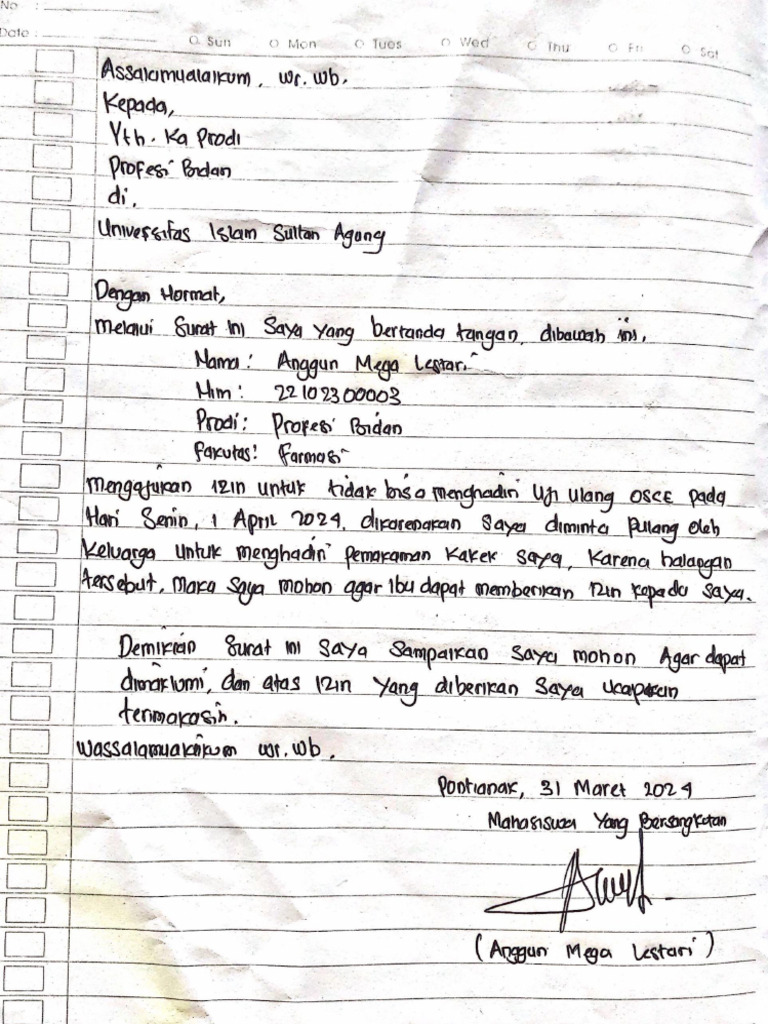 No :
Date :
Sun Mon Tues Wed Thu Fri Sat
Assalamualaikum, wr. wb.
Kepada,
Yth. Ka Prodi
Profesi Bidan
di,
Universitas Islam Sultan Agung
Dengan Hormat,
Melalui Surat ini Saya yang bertanda tangan dibawah ini,
Nama : Anggun Mega Lestari
Nim : 22102300003
Prodi : Profesi Bidan
Fakutas : Farmasi
Mengajukan izin untuk tidak bisa menghadiri Uji ulang OSCE pada
Hari Senin, 1 April 2024, dikarenakan saya diminta pulang oleh
keluarga untuk menghadiri pemakaman kakek saya, karena halangan
tersebut, maka saya mohon agar ibu dapat memberikan izin kepada saya.
Demikian Surat ini saya sampaikan saya mohon Agar dapat
dimaklumi, dan atas izin yang diberikan saya ucapkan
terimakasih.
Wassalamualaikum wr. wb.
Pontianak, 31 Maret 2024
Mahasiswa Yang Bersangkutan
(Anggun Mega Lestari)